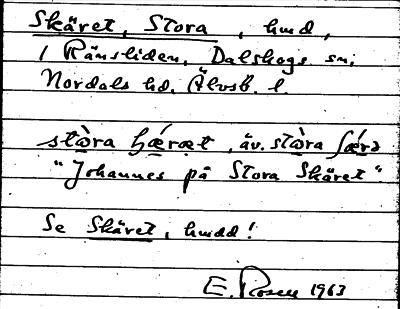 Skäret, Stora, hmd,
i Ränsliden, Dalskogs sn,
Nordals hd, Älvsb. l.
stὼra ʃǽræt, äv. stὼra ʃǽrə
"Johannes på Stora Skäret"
Se Skäret, hmdd!
E. Rosen 1963